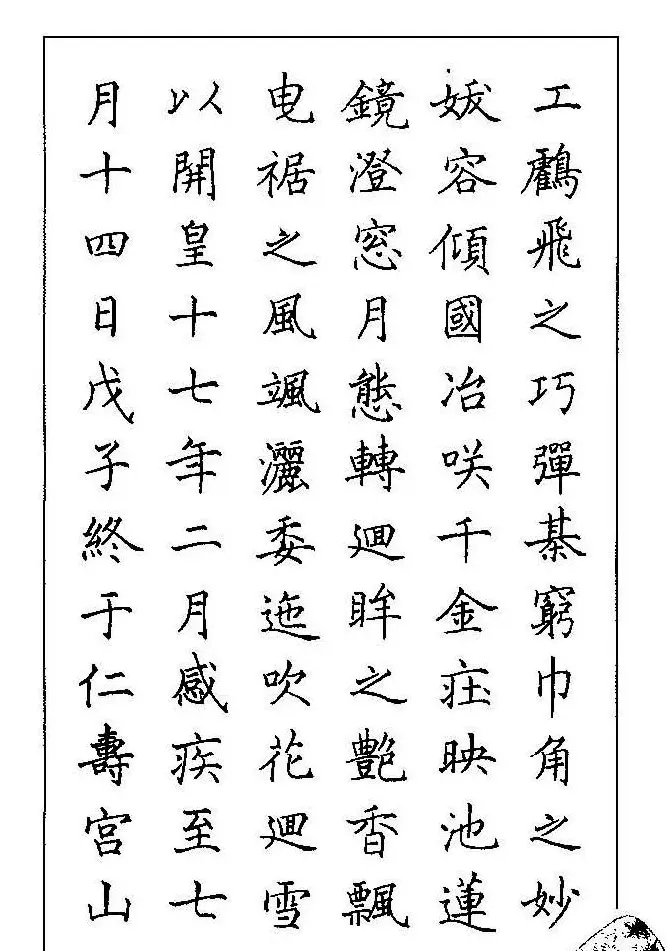 工鸖飛之巧彈棊窮巾角之妙
妭容傾國冶咲千金莊映池蓮
鏡澄窓月態轉迴眸之艶香飄
曳裾之風颯灑委迤吹花迴雪
以開皇十七年二月感疾至七
月十四日戊子終于仁壽宮山